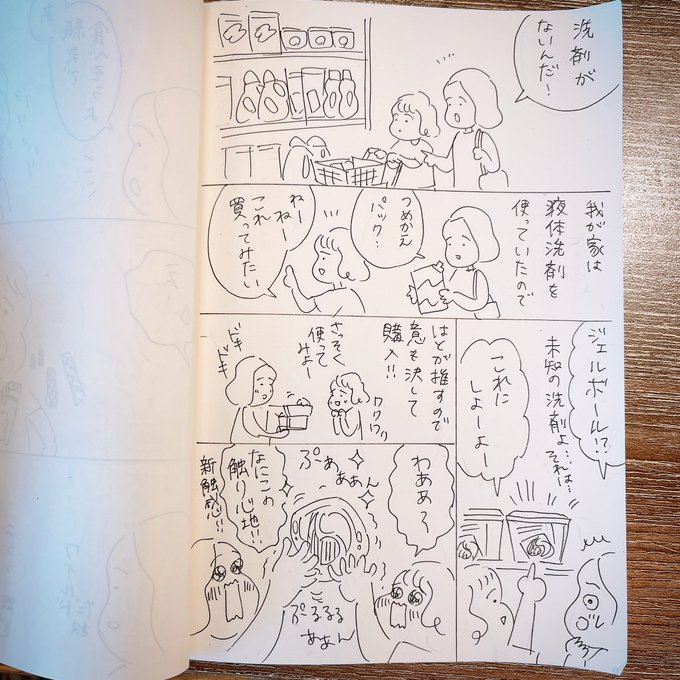 洗剤が
ないんだ!
我が家は
液体洗剤を
使っていたので
つめかえ
パック…
ねー
ねー
これ
買ってみたい
ジェルボール!?
未知の洗剤よ…
それは…
これに
しよーよー
はとが推すので
意を決して
購入!!
さっそく
使って
みよー
ワクワク
ドキ
ドキ
わああ〜
ぷぁぁぁん
ぷるるる
ああん
なにこの
触り心地!!
新触感!!